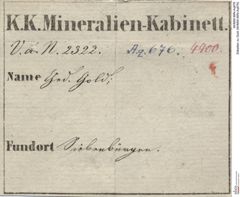 K.K. Mineralien-Kabinett.
V. a. N. 2322. A.q. 676. 4900.
Name Ged. Gold.
Fundort Siebenbürgen.